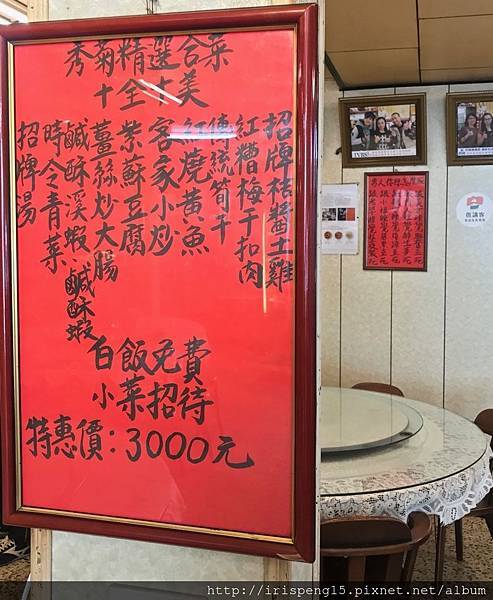 秀菊精選合菜
十全十美
招牌桔醬土雞
紅糟梅干扣肉
傳統筍干
紅燒黃魚
客家小炒
紫蘇豆腐
薑絲炒大腸
鹹酥溪蝦、鹹酥蝦
時令青菜
招牌湯
白飯免費
小菜招待
特惠價：3000元
TVBS
http://irispeng15.pixnet.net/album